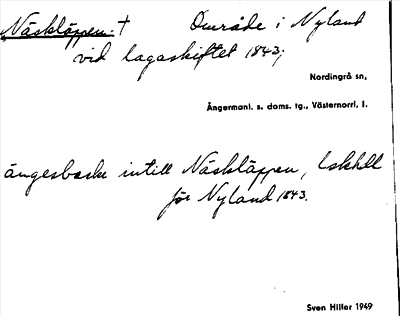 Näskläppen. † Område i Nyland
vid lagaskiftet 1843;
Nordingrå sn,
Ångermanl. s. doms. tg., Västernorrl. l.
ängesbacke intill Näskläppen, lskhdl
för Nyland 1843.
Sven Hiller 1949